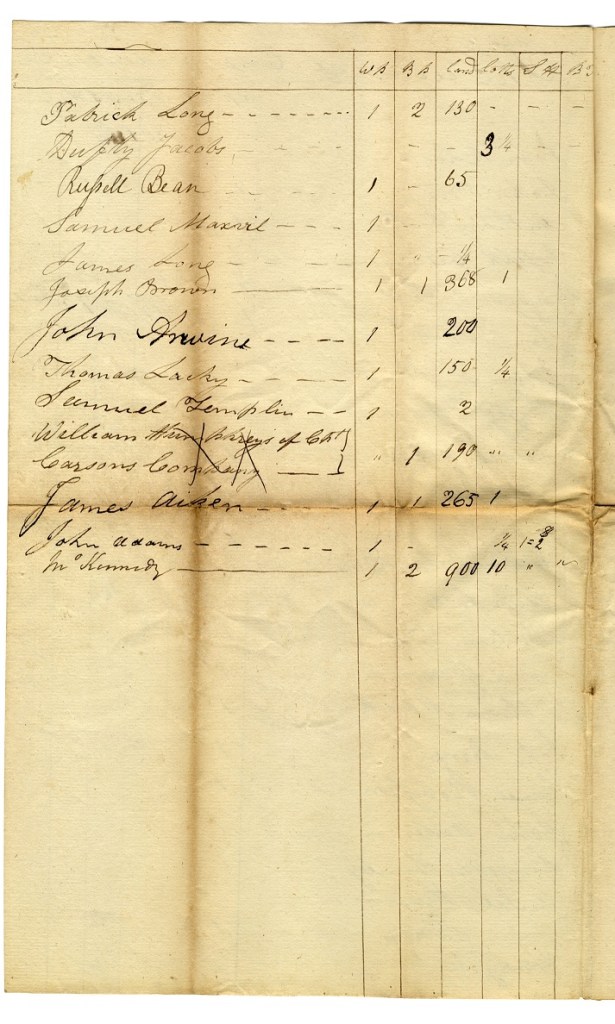 W P B P Land Lotts S H B T
Patrick Long - - - - - - - 1 2 130 - - -
Jacobs - - - 3 1/4 - -
Rusell Bean - - - 1 - 65
Samuel Maxvil - - - 1 - -
James Long - - - 1 " 1/4
Joseph Brown —— 1 1 368 1
John Arwine - - - - 1 200
Thomas Lacky - - - - 1 150 1/4
Samuel Templin - - 1 2
William Humphreys of Capt }
Carsons Company — } " 1 190 " "
James Aiken - - - 1 1 265 1
John Adams - - - - - - 1 - 1/4
Kennedy —— 1 2 900 10 " "